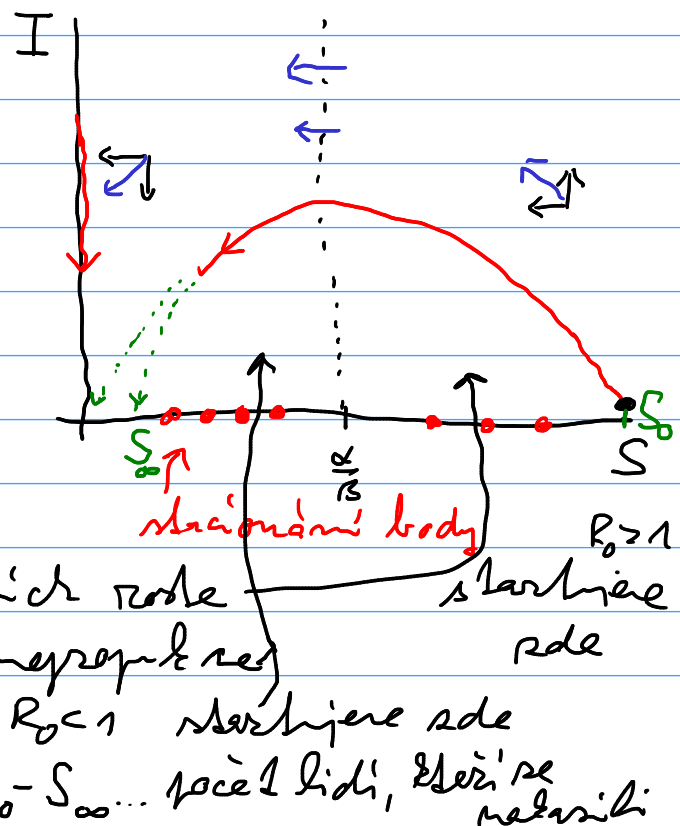 I
S∞
α/β
S₀
S
stacionární body
R₀>1
startujeme
zde
R₀<1 startujeme zde
₀-S∞... počet lidí, kteří se
nakazili